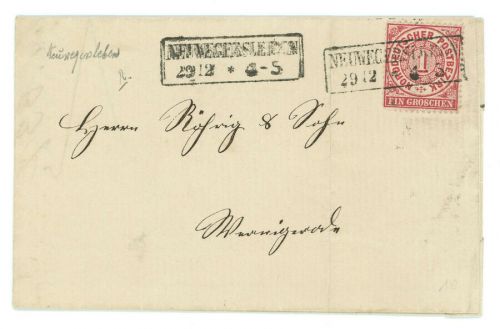 Neuwegersleben
NEUWEGERSLEBEN
29 12 * 4-5
NEUWEGERSLEBEN
29 12
NORDDEUTSCHER POSTBEZIRK
1
EIN GROSCHEN
Herrn Röhrig & Sohn
Wernigerode